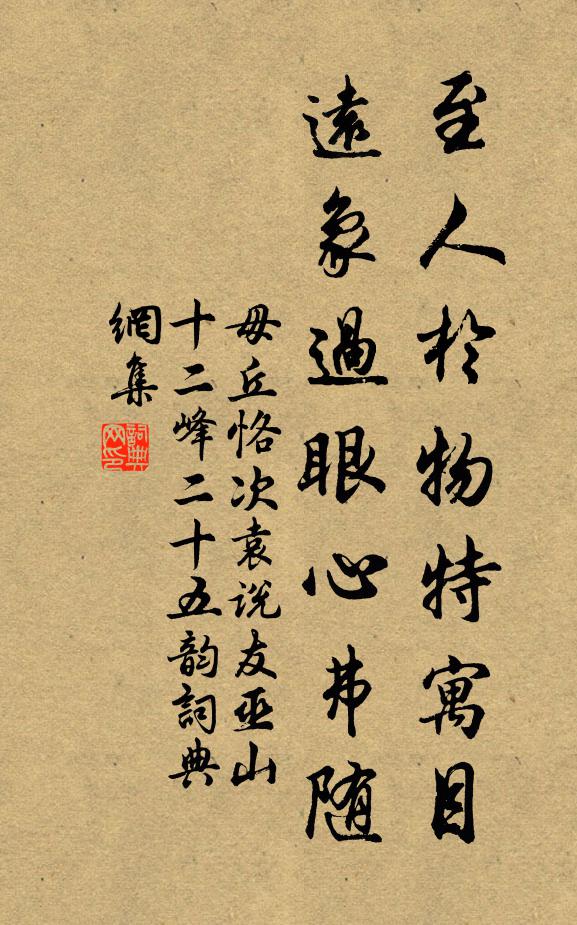 至人於物特寓目
遠象過眼心弗随
毋丘恪次袁说友巫山
十二峰二十五韵詞典
網集
詞典
网印